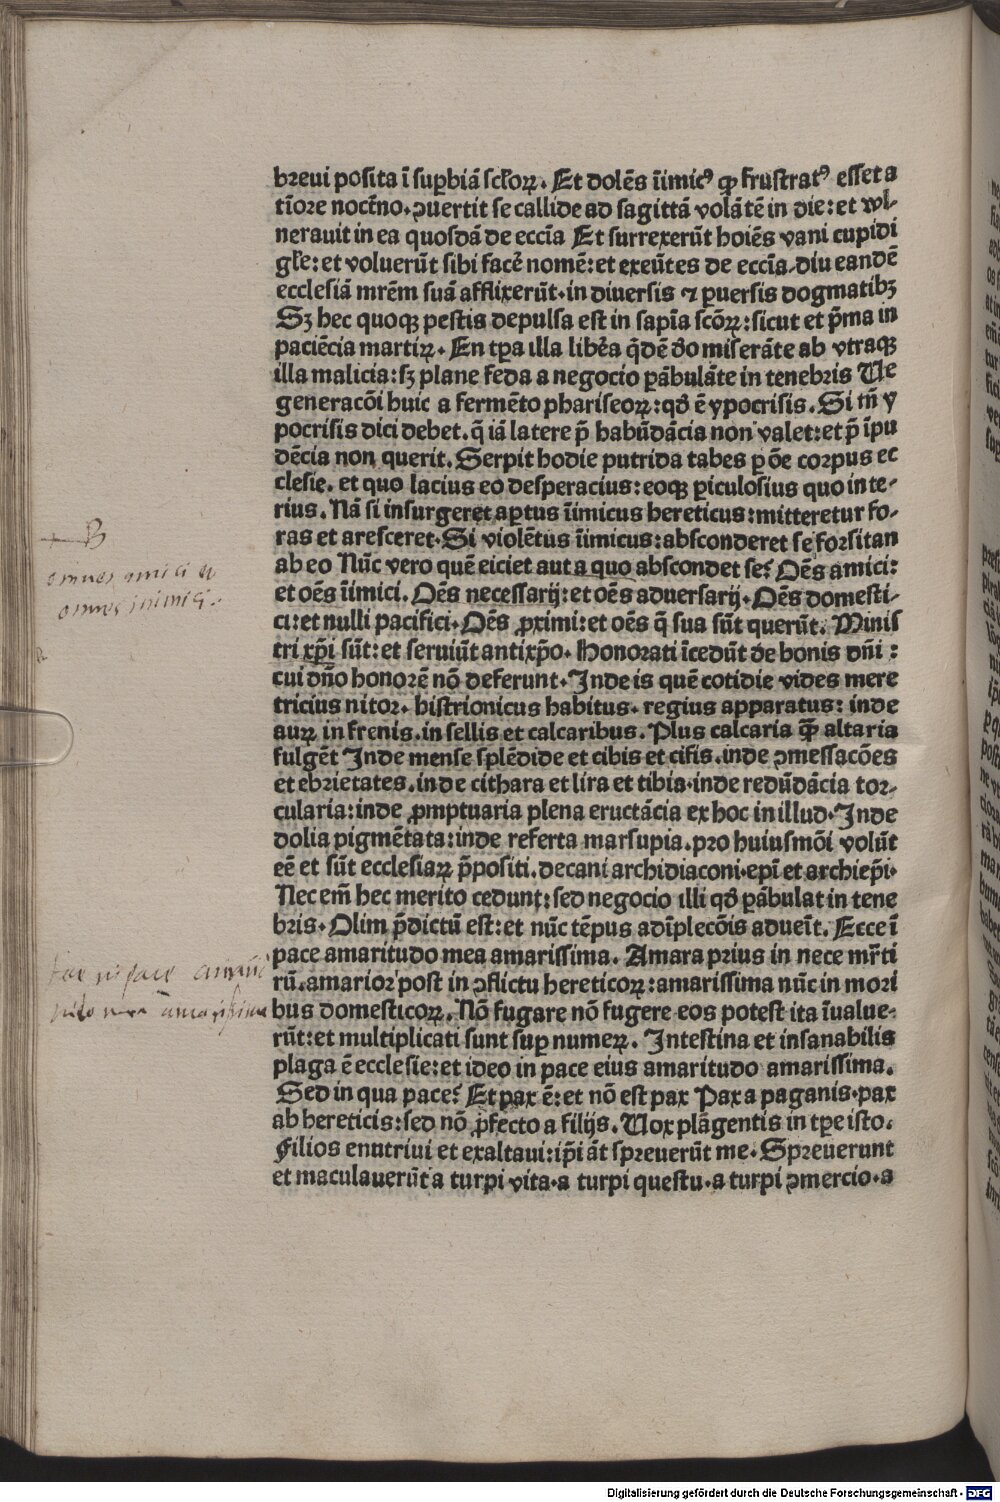 breui posita ī suꝑbiā sc̄loꝝ. Et dolēs īimicꝰ ꝙ frustratꝰ esset a
tīore noct̄no. ꝯuertit se callide ad sagittā volātē in die: et wl⸗
nerauit in ea quosdā de eccīa Et surrexerūt hoiēs vani cupidi
gl̄e: et voluerūt sibi facẽ nomē: et exeūtes de eccīa. diu eandē
ecclesiā mr̄em suā afflixerūt. in diuersis ⁊ ꝑuersis dogmatibꝫ
Sꝫ hec quoqꝫ pestis depulsa est in sapīa scōꝝ: sicut et p̄ma in
paciēcia martiꝝ. En tꝑa illa libẽa q̄dē do miserāte ab vtraqꝫ
illa malicia: sꝫ plane feda a negocio ꝑābulāte in tenebris Ue
generacōi huic a fermēto phariseoꝝ: qd ē ypocrisis. Si tn̄ y
pocrisis dici debet. q̄ iā latere p̄ habūdācia non valet: et p̄ īpu
dēcia non querit. Serpit hodie putrida tabes ꝑ oē corpus ec
clesie. et quo lacius eo desperacius: eoqꝫ ꝑiculosius quo inte⸗
rius. Nā si insurgeret aꝑtus īimicus hereticus: mitteretur fo⸗
ras et aresceret. Si violētus īimicus: absconderet se forsitan
ab eo Nūc vero quē eiciet aut a quo abscondet se? Oēs amici:
et oēs īimici. Oēs necessarij: et oēs aduersarij. Oēs domesti⸗
ci: et nulli pacifici. Oēs ꝓximi: et oēs q̄ sua sūt querūt. Minis
tri xp̄i sūt: et seruiūt antixp̄o. Honorati īcedūt de bonis dn̄i:
cui dn̄o honorē nō deferunt. Inde is quē cotidie vides mere
tricius nitor. histrionicus habitus. regius apparatus: inde
auꝝ in frenis. in sellis et calcaribus. Plus calcaria ꝙ̄ altaria
fulgēt Inde mense splēdide et cibis et cifis. inde ꝯmessacōes
et ebrietates. inde cithara et lira et tibia. inde redūdācia tor⸗
cularia: inde ꝓmptuaria plena eructācia ex hoc in illud. Inde
dolia pigmētata: inde referta marsupia. pro huiusmōi volūt
eē et sūt ecclesiaꝝ p̄positi. decani archidiaconi. epī et archiep̄i.
Nec em̄ hec merito cedunt: sed negocio illi qd ꝑābulat in tene
bris. Olim p̄dictū est: et nūc tēpus adīplecōis adueīt. Ecce ī
pace amaritudo mea amarissima. Amara prius in nece mr̄ti
rū. amarior post in ꝯflictu hereticoꝝ: amarissima nūc in mori
bus domesticoꝝ. Nō fugare nō fugere eos potest ita īualue⸗
rūt: et multiplicati sunt suꝑ numeꝝ. Intestina et insanabilis
plaga ē ecclesie: et ideo in pace eius amaritudo amarissima.
Sed in qua pace? Et pax ē: et nō est pax Pax a paganis. pax
ab hereticis: sed nō ꝓfecto a filijs. Uox plāgentis in tꝑe isto.
Filios enutriui et exaltaui: ip̄i āt spreuerūt me. Spreuerunt
et maculauerūt a turpi vita. a turpi questu. a turpi ꝯmercio. a
omnes amici et
omnes inimici.
Digitalisierung gefördert durch die Deutsche Forschungsgemeinschaft - DFG